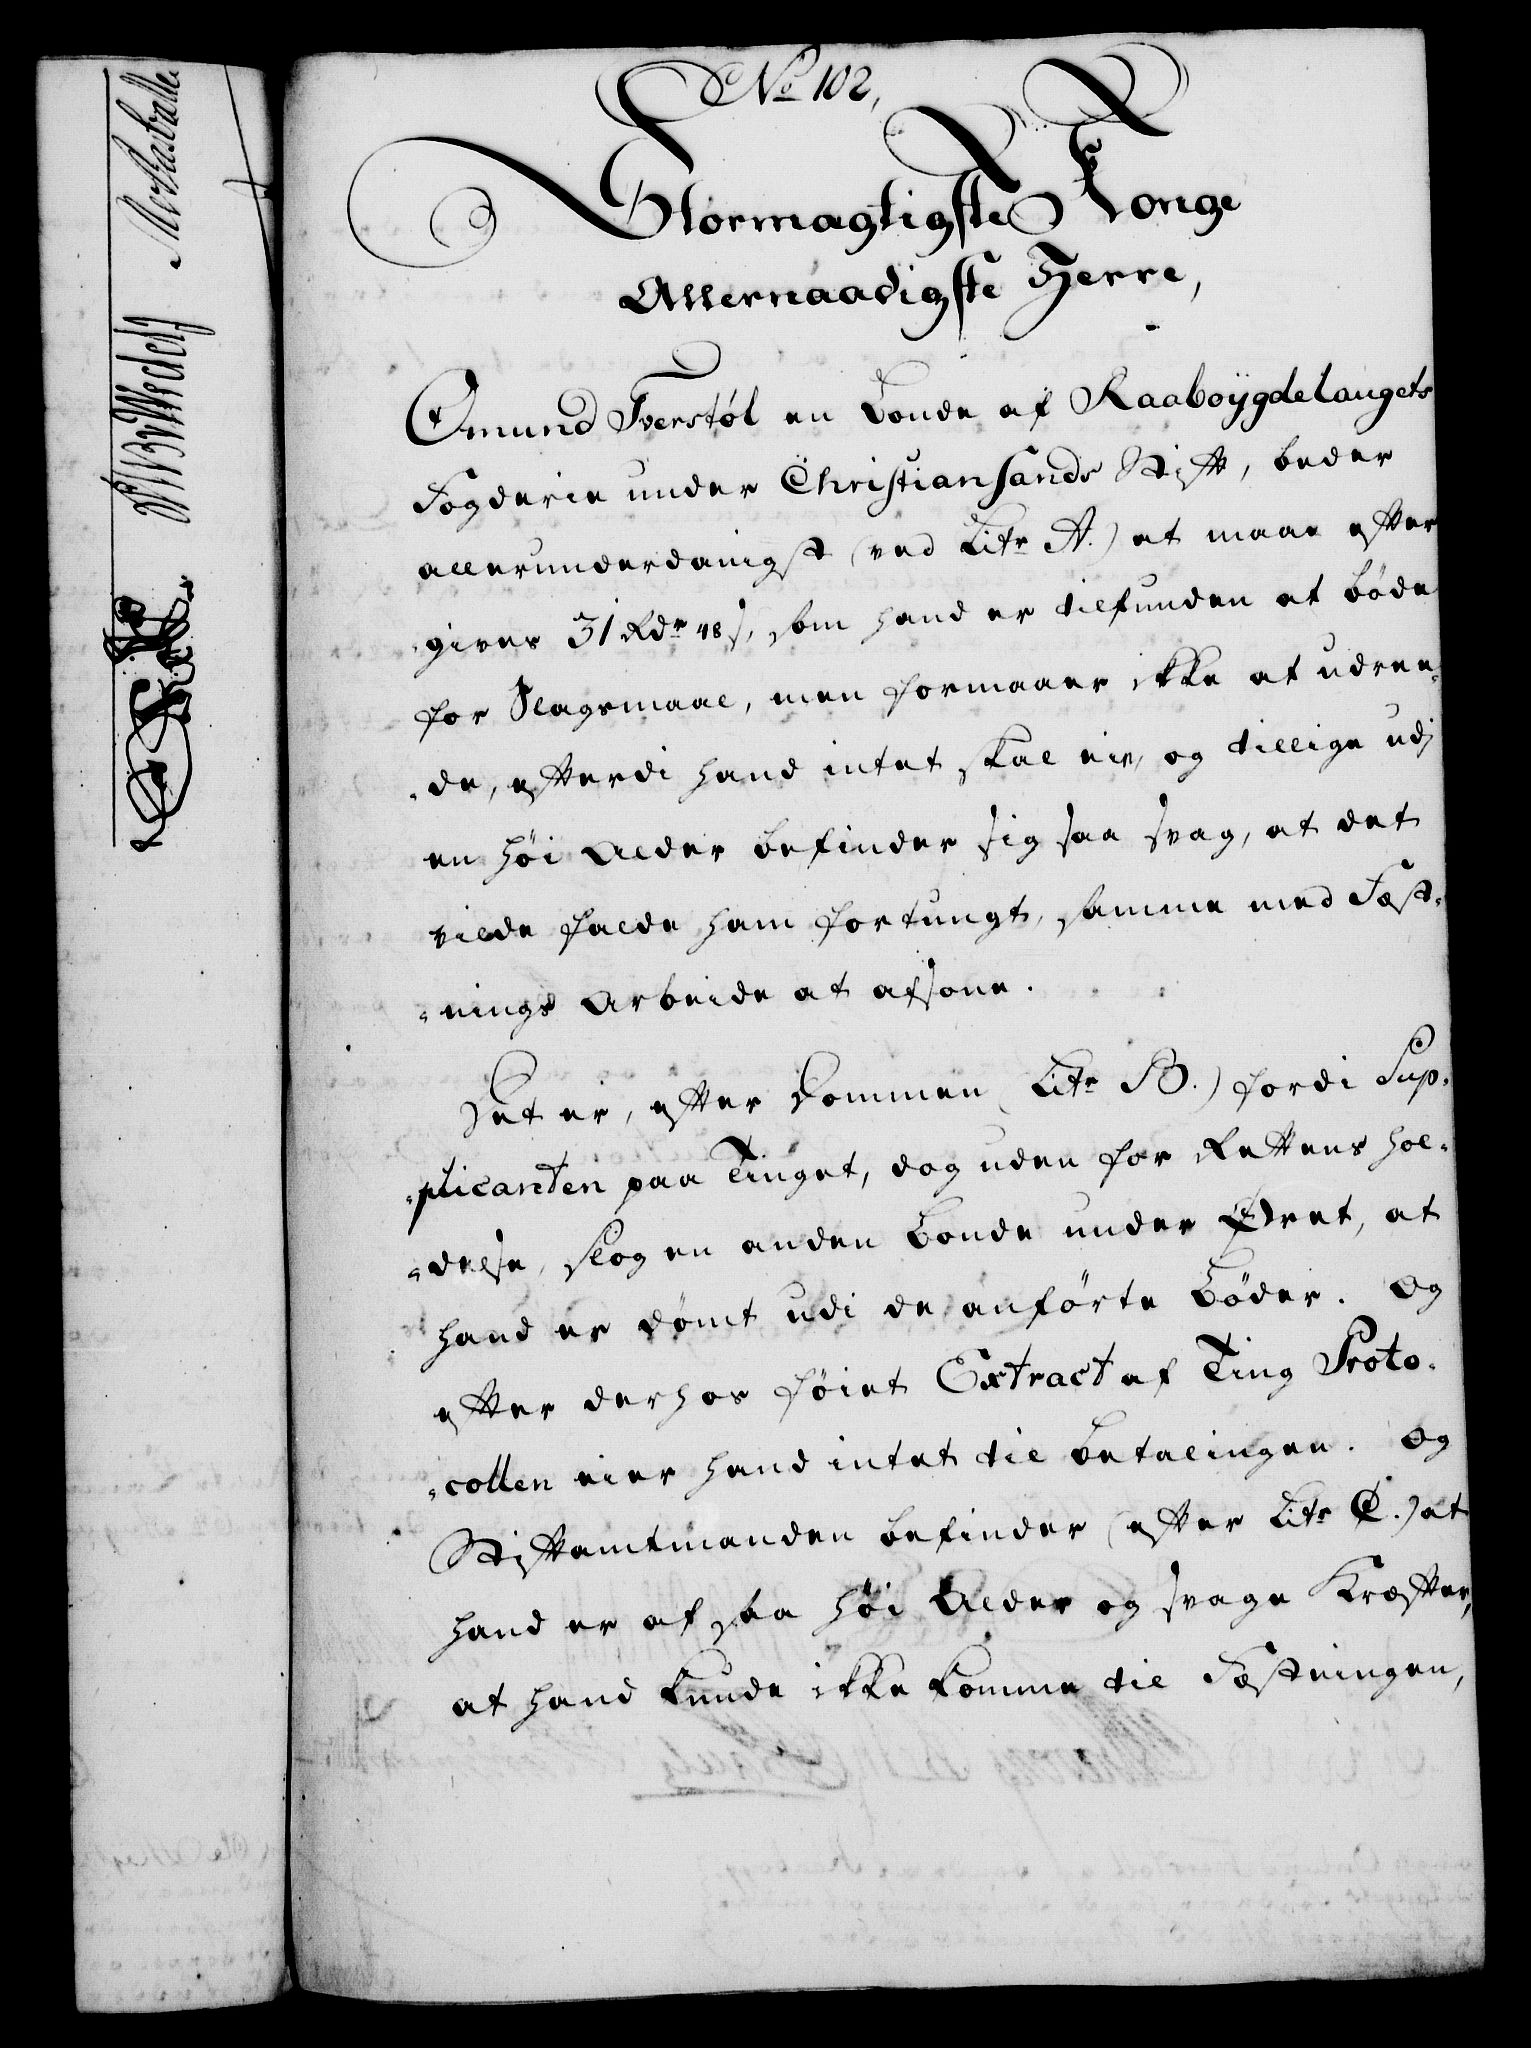 No 102,
Stormagtigste Konge
Allernaadigste Herre,
Omund Tverstøl en Bonde af Raaboÿgdelaugets
Fogderie under Christiansands Stift, beder
allerunderdanigst (ved Litr A.) at maae efter-
-gives 31 Rdr 48 s, som hand er tilfunden at bøde
for Slagsmaal, men formaaer ikke at udree-
-de, efterdi hand intet skal eie, og tillige udj
en høi Alder befinder sig saa svag, at det
vilde falde ham fortungt, samme med Fæst-
-nings Arbeide at afsone.
Det er, efter Dommen (Litr B.) fordi Sup-
-plicanten paa Tinget, dog uden for Rettens hol-
-delse, slog en anden Bonde under Øret, at
hand er dømt udi de anførte Bøder. Og
efter derhos føiet Extract af Ting Proto-
-collen eier hand intet til Betalingen. Og
Stiftamtmanden befinder (efter Litr C.) at
hand er af saa høi Alder og svage Kræfter,
at hand kunde ikke komme til Fæstningen,